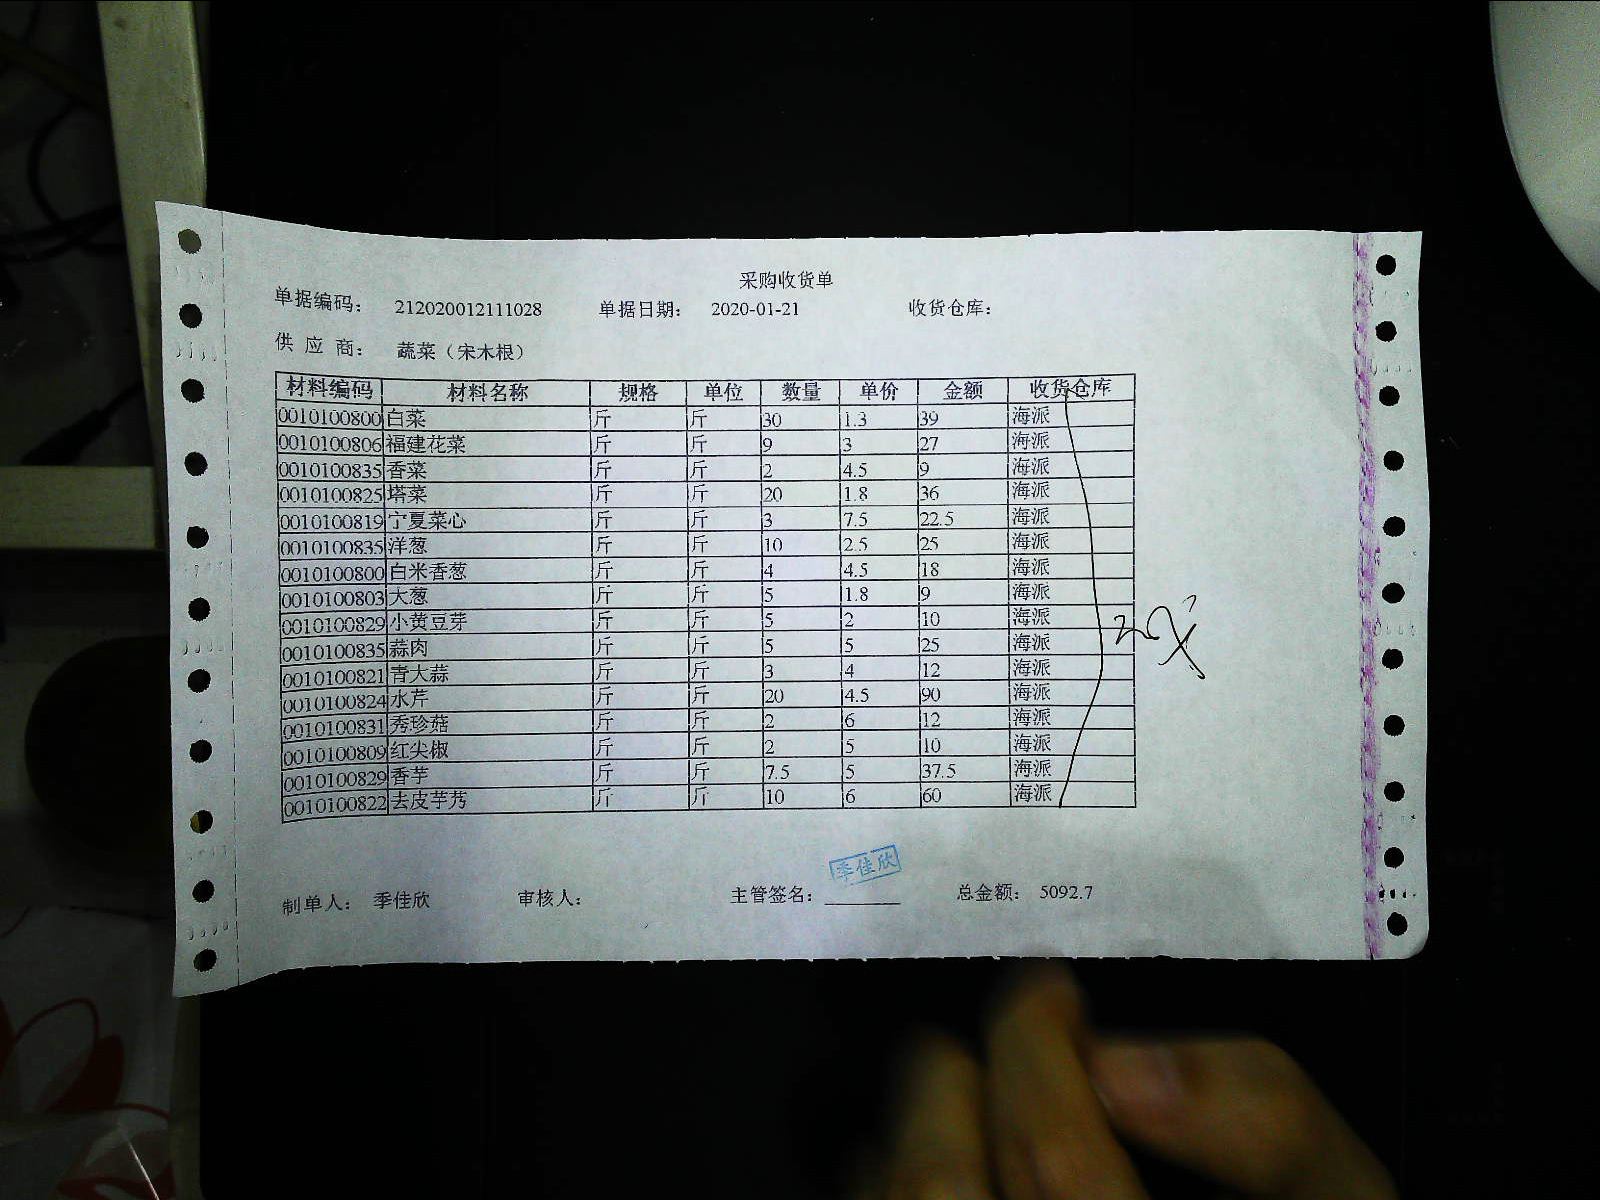 采购收货单
单据编码： 212020012111028 单据日期： 2020-01-21 收货仓库：
供 应 商： 蔬菜（宋木根）
材料编码 材料名称 规格 单位 数量 单价 金额 收货仓库
0010100800 白菜 斤 斤 30 1.3 39 海派
0010100806 福建花菜 斤 斤 9 3 27 海派
0010100835 香菜 斤 斤 2 4.5 9 海派
0010100825 塔菜 斤 斤 20 1.8 36 海派
0010100819 宁夏菜心 斤 斤 3 7.5 22.5 海派
0010100835 洋葱 斤 斤 10 2.5 25 海派
0010100800 白米香葱 斤 斤 4 4.5 18 海派
0010100803 大葱 斤 斤 5 1.8 9 海派
0010100829 小黄豆芽 斤 斤 5 2 10 海派
0010100835 蒜肉 斤 斤 5 5 25 海派
0010100821 青大蒜 斤 斤 3 4 12 海派
0010100824 水芹 斤 斤 20 4.5 90 海派
0010100831 秀珍菇 斤 斤 2 6 12 海派
0010100809 红尖椒 斤 斤 2 5 10 海派
0010100829 香芋 斤 斤 7.5 5 37.5 海派
0010100822 去皮芋艿 斤 斤 10 6 60 海派
季佳欣
制单人： 季佳欣 审核人： 主管签名： 总金额： 5092.7